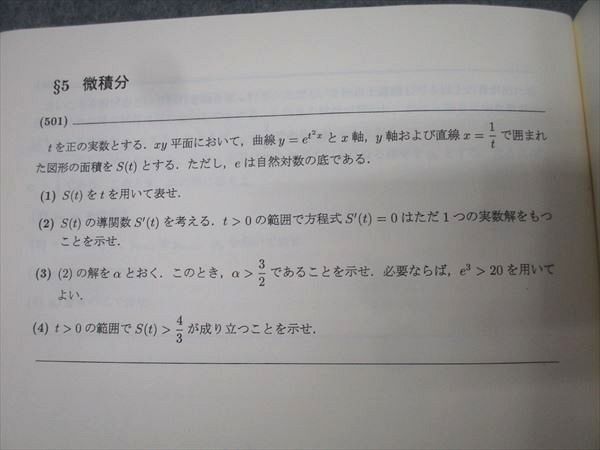 §5 微積分
(501)
tを正の実数とする．xy平面において，曲線 y = e^{t^2x} と x 軸，y 軸および直線 x = \frac{1}{t} で囲まれ
た図形の面積を S(t) とする．ただし，e は自然対数の底である．
(1) S(t) を t を用いて表せ．
(2) S(t) の導関数 S'(t) を考える．t > 0 の範囲で方程式 S'(t) = 0 はただ 1 つの実数解をもつ
ことを示せ．
(3) (2) の解を α とおく．このとき，α > \frac{3}{2} であることを示せ．必要ならば，e^3 > 20 を用いて
よい．
(4) t > 0 の範囲で S(t) > \frac{4}{3} が成り立つことを示せ．